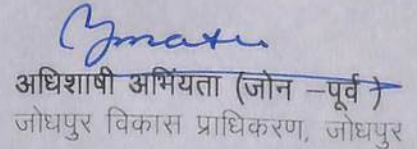 अधिशाषी अभियंता (जोन –पूर्व )
जोधपुर विकास प्राधिकरण, जोधपुर